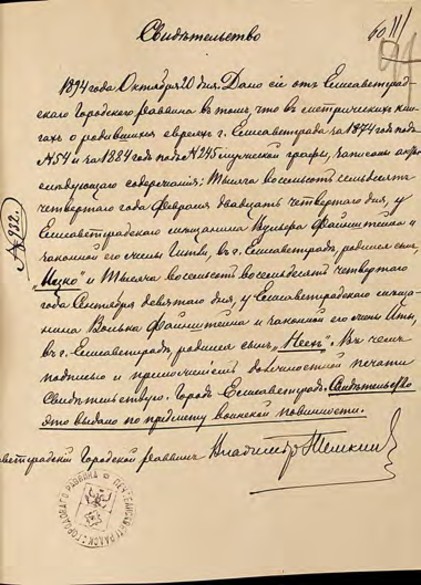 Свидѣтельство
1894 года Октября 20 дня. Дано сіе отъ Елисаветград-
скаго Городского Раввина въ томъ, что въ метрическихъ кни-
гахъ о родившихся евреяхъ г. Елисаветграда за 1874 годъ подъ
№54 и за 1884 годъ подъ №245 мужеской графы, записаны акты
слѣдующаго содержанія: Тысяча восемьсотъ семьдесятъ
четвертаго года Февраля двадцать четвертаго дня, у
Елисаветградскаго мѣщанина Вульфа Файнштейна и
законной его жены Итты, въ г. Елисаветградѣ, родился сынъ,
и Тысяча восемьсотъ восемьдесятъ четвертаго
года Сентября девятаго дня, у Елисаветградскаго мѣща-
нина Волька Файнштейна и законной его жены Итты,
въ г. Елисаветградѣ, родился сынъ „ ". Въ чемъ
подписью и приложеніемъ должностной печати
Свидѣтельствую. Городъ Елисаветградъ. Свидѣтельство
это выдано по предмету воинской повинности.
Городской Раввинъ Владиміръ Темкинъ
№ 932.